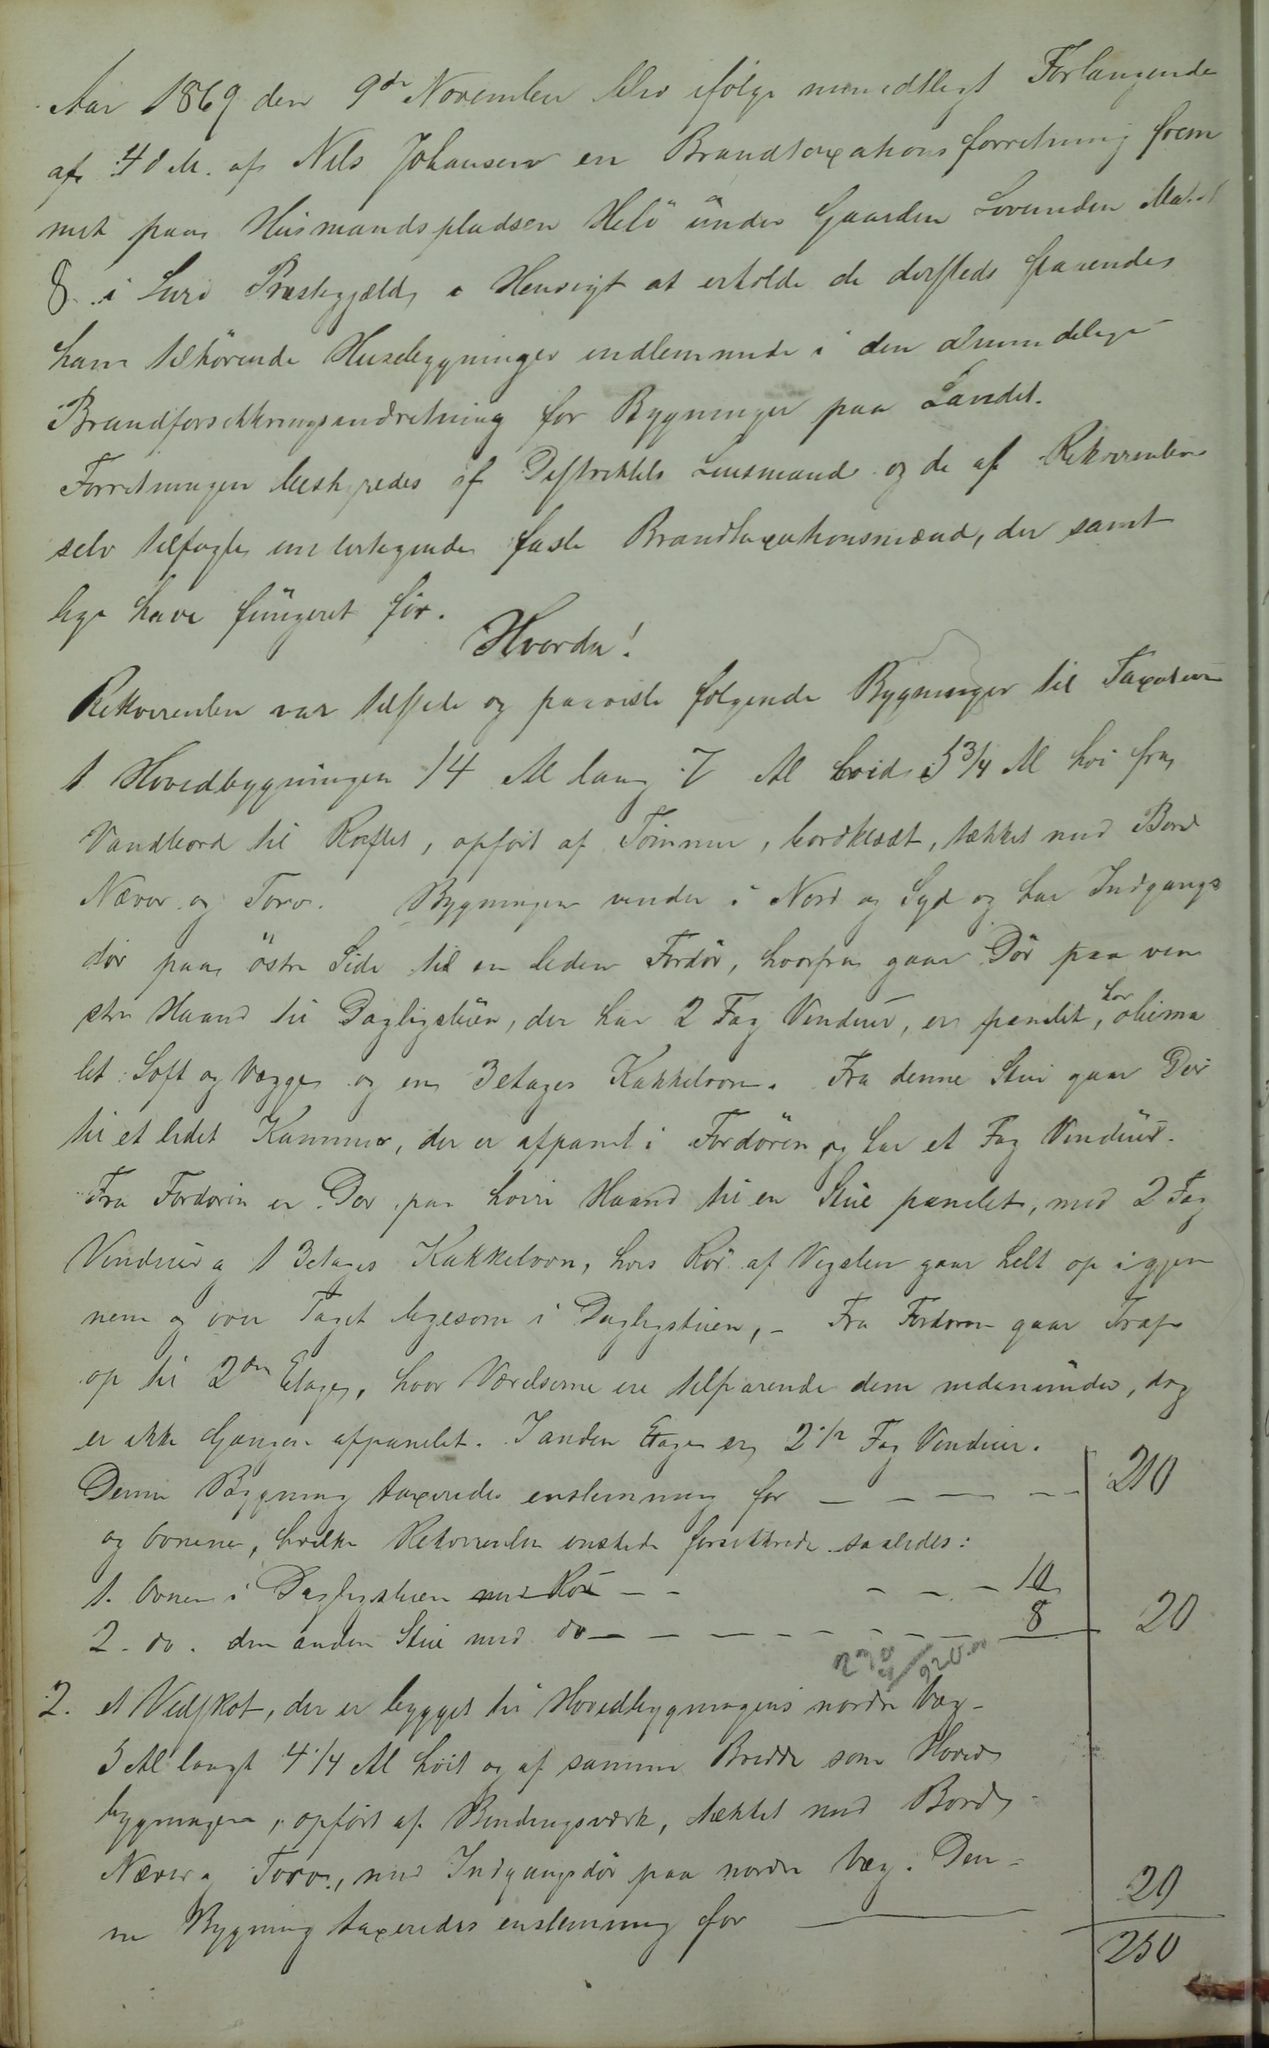 Aar 1869 den 9de November blev ifölge mundtligt Forlangende
af 4 d. M. af Nils Johansen en Brandtaxationsforretning frem
met paa Husmandspladsen Helö under Gaarden Lovunden Mat.
8 i Lurö Præstegjæld, i Hensigt at erholde de dersteds staaende
ham tilhörende Husebygninger indlemmede i den almindelige
Brandforsikkringsindretning for Bygninger paa Landet.
Forretningen bestyredes af Distriktets Lensmand og de af Rekvirenten
selv tilsagte undertegnede faste Brandtaxationsmænd, der samt
lige have fungeret för.
Hvorda!
Rekvirenten var tilstede og paaviste fölgende Bygninger til Taxation
1 Hovedbygningen 14 Al lang 7 Al bred 5 3/4 Al höi fra
Vandbord til Röstet, opfört af Tömmer, bordklædt, tækket med Bord
Næver og Torv. Bygningen vender i Nord og Syd og har Indgangs
dör paa östre Side til en liden Fordör, hvorfra gaar Dör paa ven
stre Haand til Dagligstuen, der har 2 Fag Vinduer, er panelet, har oliema
let Loft og Vægge og en 3etages Kakkelovn. Fra denne Stue gaar Dör
til et lidet Kammer, der er afpanelt i Fordören og har et Fag Vinduer.
Fra Fordören er Dör paa höire Haand til en Stue panelet, med 2 Fag
Vinduer og 1 3etages Kakkelovn, hvis Rör af Vegsten gaar helt op igjen
nem og over Taget ligesom i Dagligstuen, - Fra Fordören gaar Trap
op til 2den Etage, hvor Værelserne ere tilsvarende dem nedenunder, dog
er ikke Gangen afpanelet. I anden Etage er 2 1/2 Fag Vinduer.
Denne Bygning taxeredes enstemmig for — — — — 210
og Ovnene, hvilke Rekvirenten önskede forsikkrede saaledes:
1. Ovnen i Dagligstuen med Rör — — — — — 10
2. do. den anden Stue med do — — — — — — 8 20
230
2. et Vedskot, der er bygget til Hovedbygningens nordre Væg -
5 Al langt 4 1/4 Al höit og af samme Bredde som Hoved
bygningen, opfört af Bindingsværk, tækket med Bord,
Næver og Torv, med Indgangsdör paa nordre Væg. Den-
ne Bygning taxeredes enstemmig for — 20
250